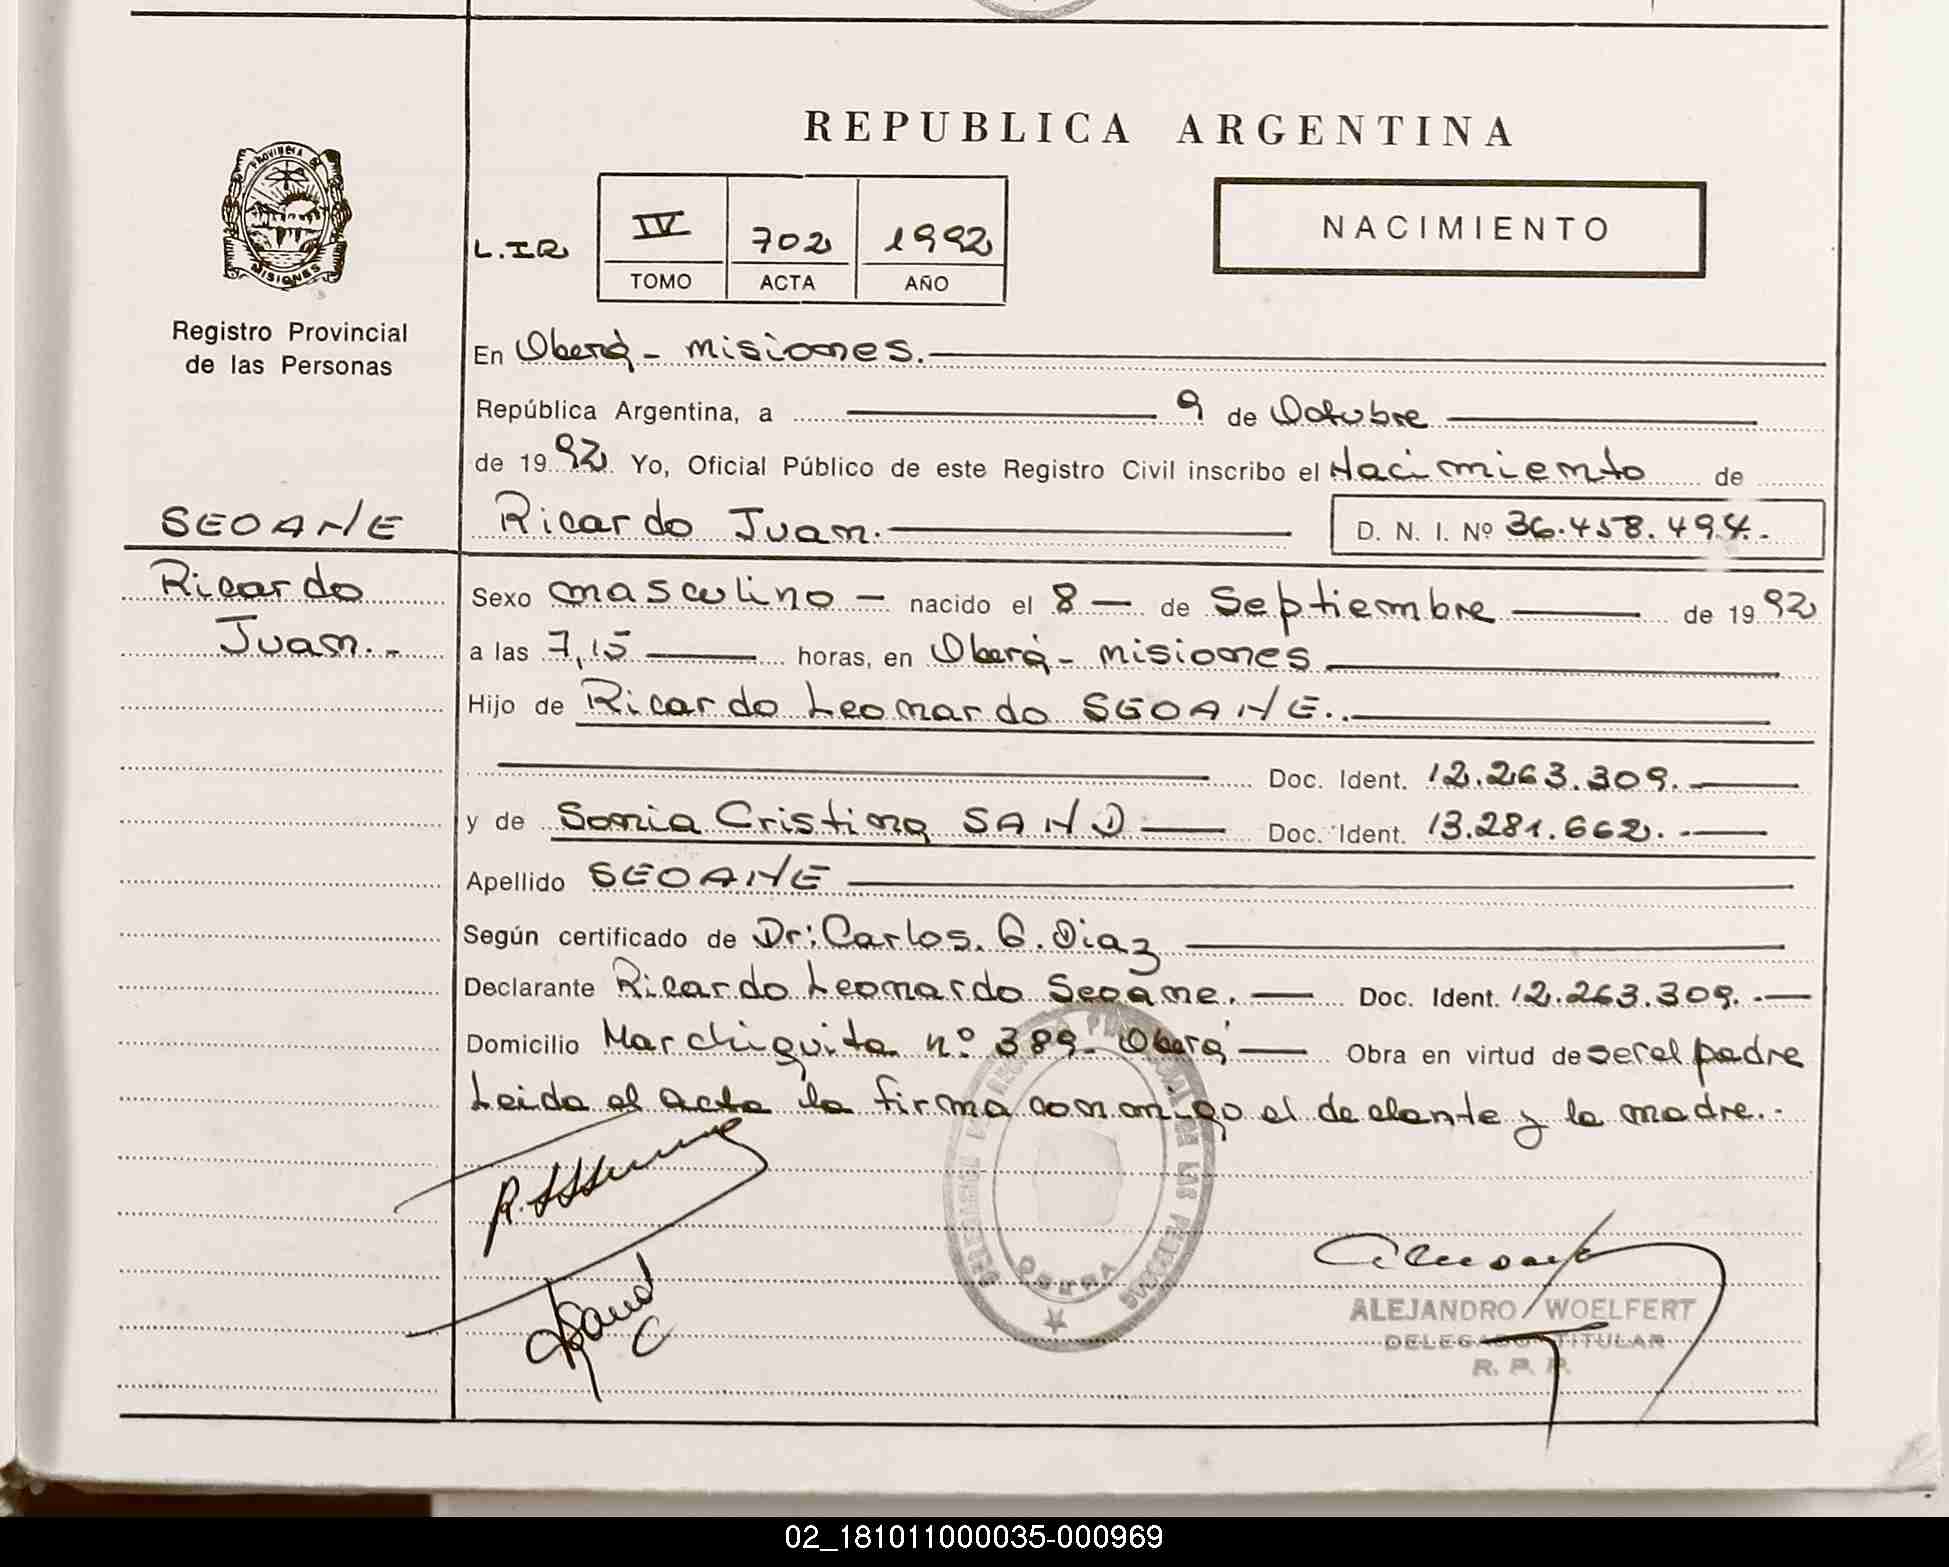 REPUBLICA ARGENTINA
PROVINCIA DE
MISIONES
Registro Provincial
de las Personas
L.IR IV 702 1992
TOMO ACTA AÑO
NACIMIENTO
En Oberá - misiones.
República Argentina, a 9 de Octubre
de 1992 Yo, Oficial Público de este Registro Civil inscribo el Nacimiento de
SEOANE
Ricardo Juan. D. N. I. Nº 36.458.494.-
Ricardo
Juan..-
Sexo masculino - nacido el 8 - de Septiembre de 1992
a las 7,15 horas, en Oberá - misiones
Hijo de Ricardo Leonardo SEOANE..
Doc. Ident. 12.263.309.
y de Sonia Cristina SAND Doc. Ident. 13.281.662.-
Apellido SEOANE
Según certificado de Dr: Carlos. G. Diaz
Declarante Ricardo Leonardo Seoane. Doc. Ident. 12.263.309.-
Domicilio Marchiquita nº 389- Oberá Obra en virtud de ser el padre
Leida el acta la firma conmigo el declante y la madre.-
OBERA
ALEJANDRO WOELFERT
DELEGADO TITULAR
R. P. P.
02_181011000035-000969